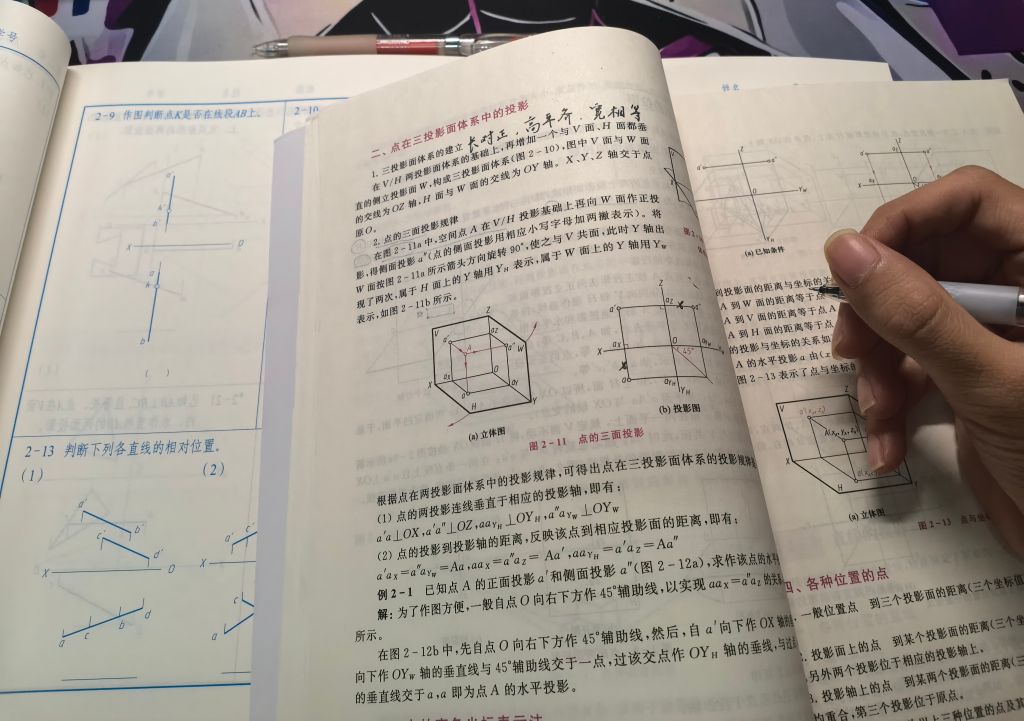 学号
2-9 作图判断点K是否在线段AB上。
2-10
a'
k'
X
O
a
k
b
( )
2-13 判断下列各直线的相对位置。
(1)
(2)
a'
b'
c'
d'
X
O
a
c
b
d
c'
X
c
a
二、点在三投影面体系中的投影
长对正，高平齐，宽相等
1. 三投影面体系的建立
在 V/H 两投影面体系的基础上,再增加一个与 V 面、H 面都垂
直的侧立投影面 W,构成三投影面体系(图 2-10),图中 V 面与 W 面
的交线为 OZ 轴,H 面与 W 面的交线为 OY 轴。X、Y、Z 轴交于点
原 O。
2. 点的三面投影规律
在图 2-11a 中,空间点 A 在 V/H 投影基础上再向 W 面作正投
影,得侧面投影 a″(点的侧面投影用相应小写字母加两撇表示)。将
W 面按图 2-11a 所示箭头方向旋转 90°,使之与 V 共面,此时 Y 轴出
现了两次,属于 H 面上的 Y 轴用 Y_H 表示,属于 W 面上的 Y 轴用 Y_W
表示,如图 2-11b 所示。
Z
V
a'
az
A
a″
W
ax
O
X
a
ay
H
Y
(a) 立体图
Z
a'
az
a″
X
ax
O
45°
a
Y_H
(b) 投影图
图 2-11 点的三面投影
根据点在两投影面体系中的投影规律,可得出点在三投影面体系的投影规律
(1) 点的两投影连线垂直于相应的投影轴,即有:
a'a⊥OX,a'a″⊥OZ,aa_{Y_H}⊥OY_H,a″a_{Y_W}⊥OY_W
(2) 点的投影到投影轴的距离,反映该点到相应投影面的距离,即有:
a'a_X=a″a_{Y_W}=Aa,aa_X=a″a_Z=Aa',aa_{Y_H}=a'a_Z=Aa″
例 2-1 已知点 A 的正面投影 a'和侧面投影 a″(图 2-12a),求作该点的水平
解:为了作图方便,一般自点 O 向右下方作 45°辅助线,以实现 aa_X=a″a_Z 的关系
所示。
在图 2-12b 中,先自点 O 向右下方作 45°辅助线,然后,自 a'向下作 OX 轴的
向下作 OY_W 轴的垂直线与 45°辅助线交于一点,过该交点作 OY_H 轴的垂线,与过
的垂直线交于 a,a 即为点 A 的水平投影。
Z
a'
a″
X
O
Y_W
Y_H
(a) 已知条件
Z
a'
O
到投影面的距离与坐标的关
A 到 W 面的距离等于点
A 到 V 面的距离等于点 A
A 到 H 面的距离等于点
的投影与坐标的关系如
A 的水平投影 a 由(x
图 2-13 表示了点与坐标的
V
Z
X
H
Y
(a) 立体图
图 2-13 点与坐
四、各种位置的点
一般位置点 到三个投影面的距离(三个坐标值
投影面上的点 到某个投影面的距离(三个坐
另外两个投影位于相应的投影轴上。
3. 投影轴上的点 到某两个投影面的距离(三
均重合,第三个投影位于原点。
三种位置的点及其